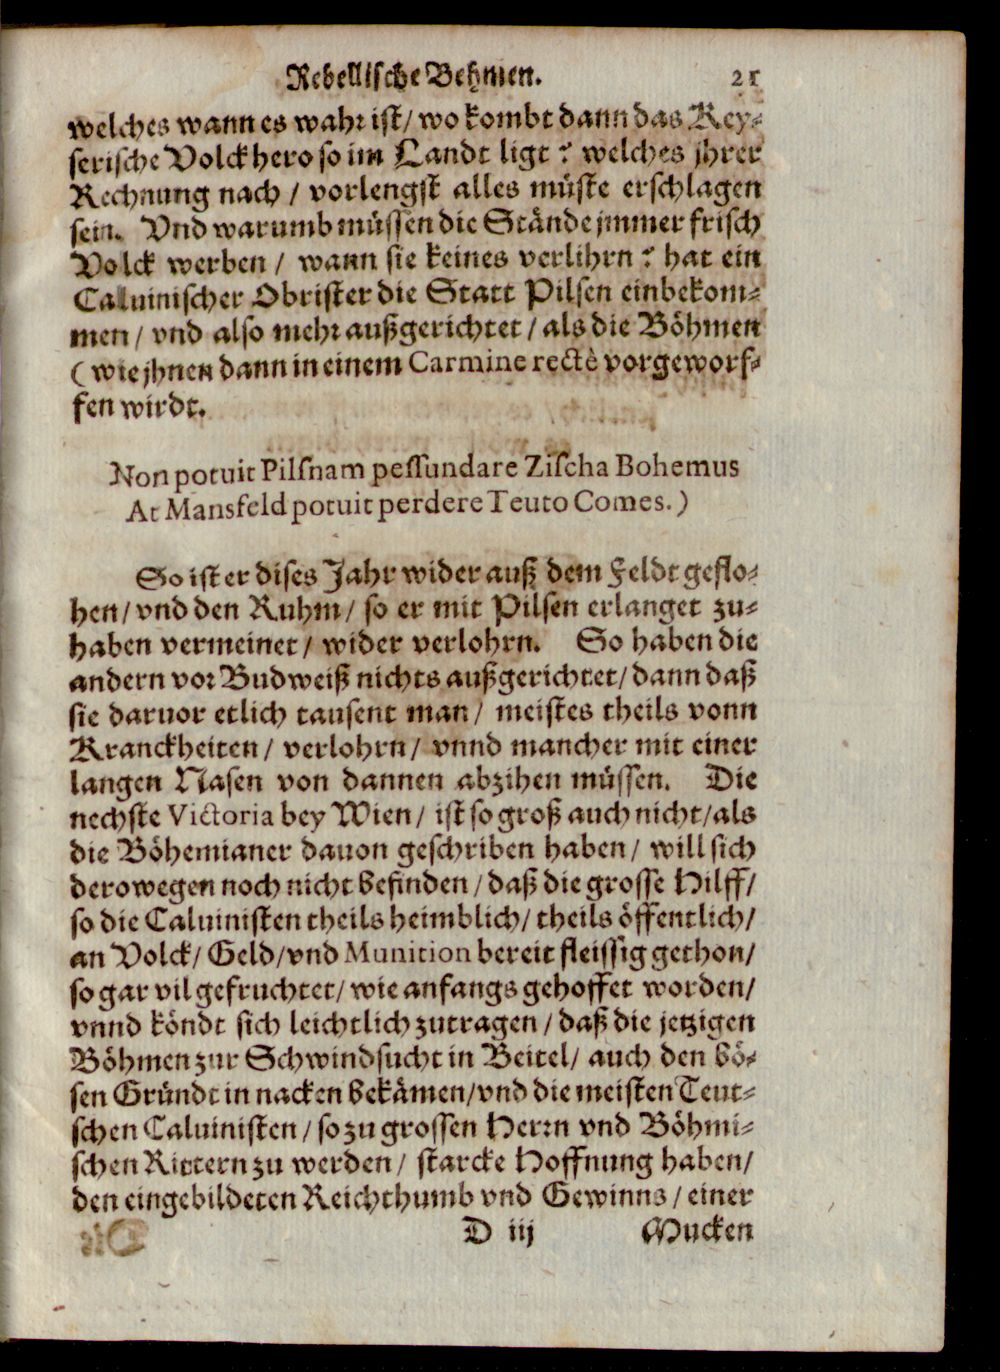 Rebellische Behmen. 21
welches wann es wahr ist/ wo kombt dann das Key-
serische Volck hero so im Landt ligt? welches jhrer
Rechnung nach / vorlengst alles müste erschlagen
sein. Vnd warumb müssen die Stände jmmer frisch
Volck werben / wann sie keines verlihrn? hat ein
Caluinischer Obrister die Statt Pilsen einbekom-
men / vnd also mehr außgerichtet / als die Böhmen
(wie jhnen dann in einem Carmine rectè vorgeworf-
fen wirdt.
Non potuit Pilsnam pessundare Zischa Bohemus
At Mansfeld potuit perdere Teuto Comes.)
So ist er dises Jahr wider auß dem Feldt geflo-
hen/ vnd den Ruhm/ so er mit Pilsen erlanget zu-
haben vermeinet / wider verlohrn. So haben die
andern vor Budweiß nichts außgerichtet/ dann daß
sie daruor etlich tausent man / meistes theils vonn
Kranckheiten / verlohrn / vnnd mancher mit einer
langen Nasen von dannen abzihen müssen. Die
nechste Victoria bey Wien / ist so groß auch nicht/als
die Böhemianer dauon geschriben haben / will sich
derowegen noch nicht befinden / daß die grosse Hilff/
so die Caluinisten theils heimblich/ theils öffentlich/
an Volck/ Geld/vnd Munition bereit fleissig gethon/
so gar vil gefruchtet/ wie anfangs gehoffet worden/
vnnd köndt sich leichtlich zutragen / daß die jetzigen
Böhmen zur Schwindsucht in Beitel/ auch den bö-
sen Gründt in nacken bekämen/vnd die meisten Teut-
schen Caluinisten / so zu grossen Herrn vnd Böhmi-
schen Rittern zu werden / starcke Hoffnung haben/
den eingebildeten Reichthumb vnd Gewinns / einer
D iij Mucken